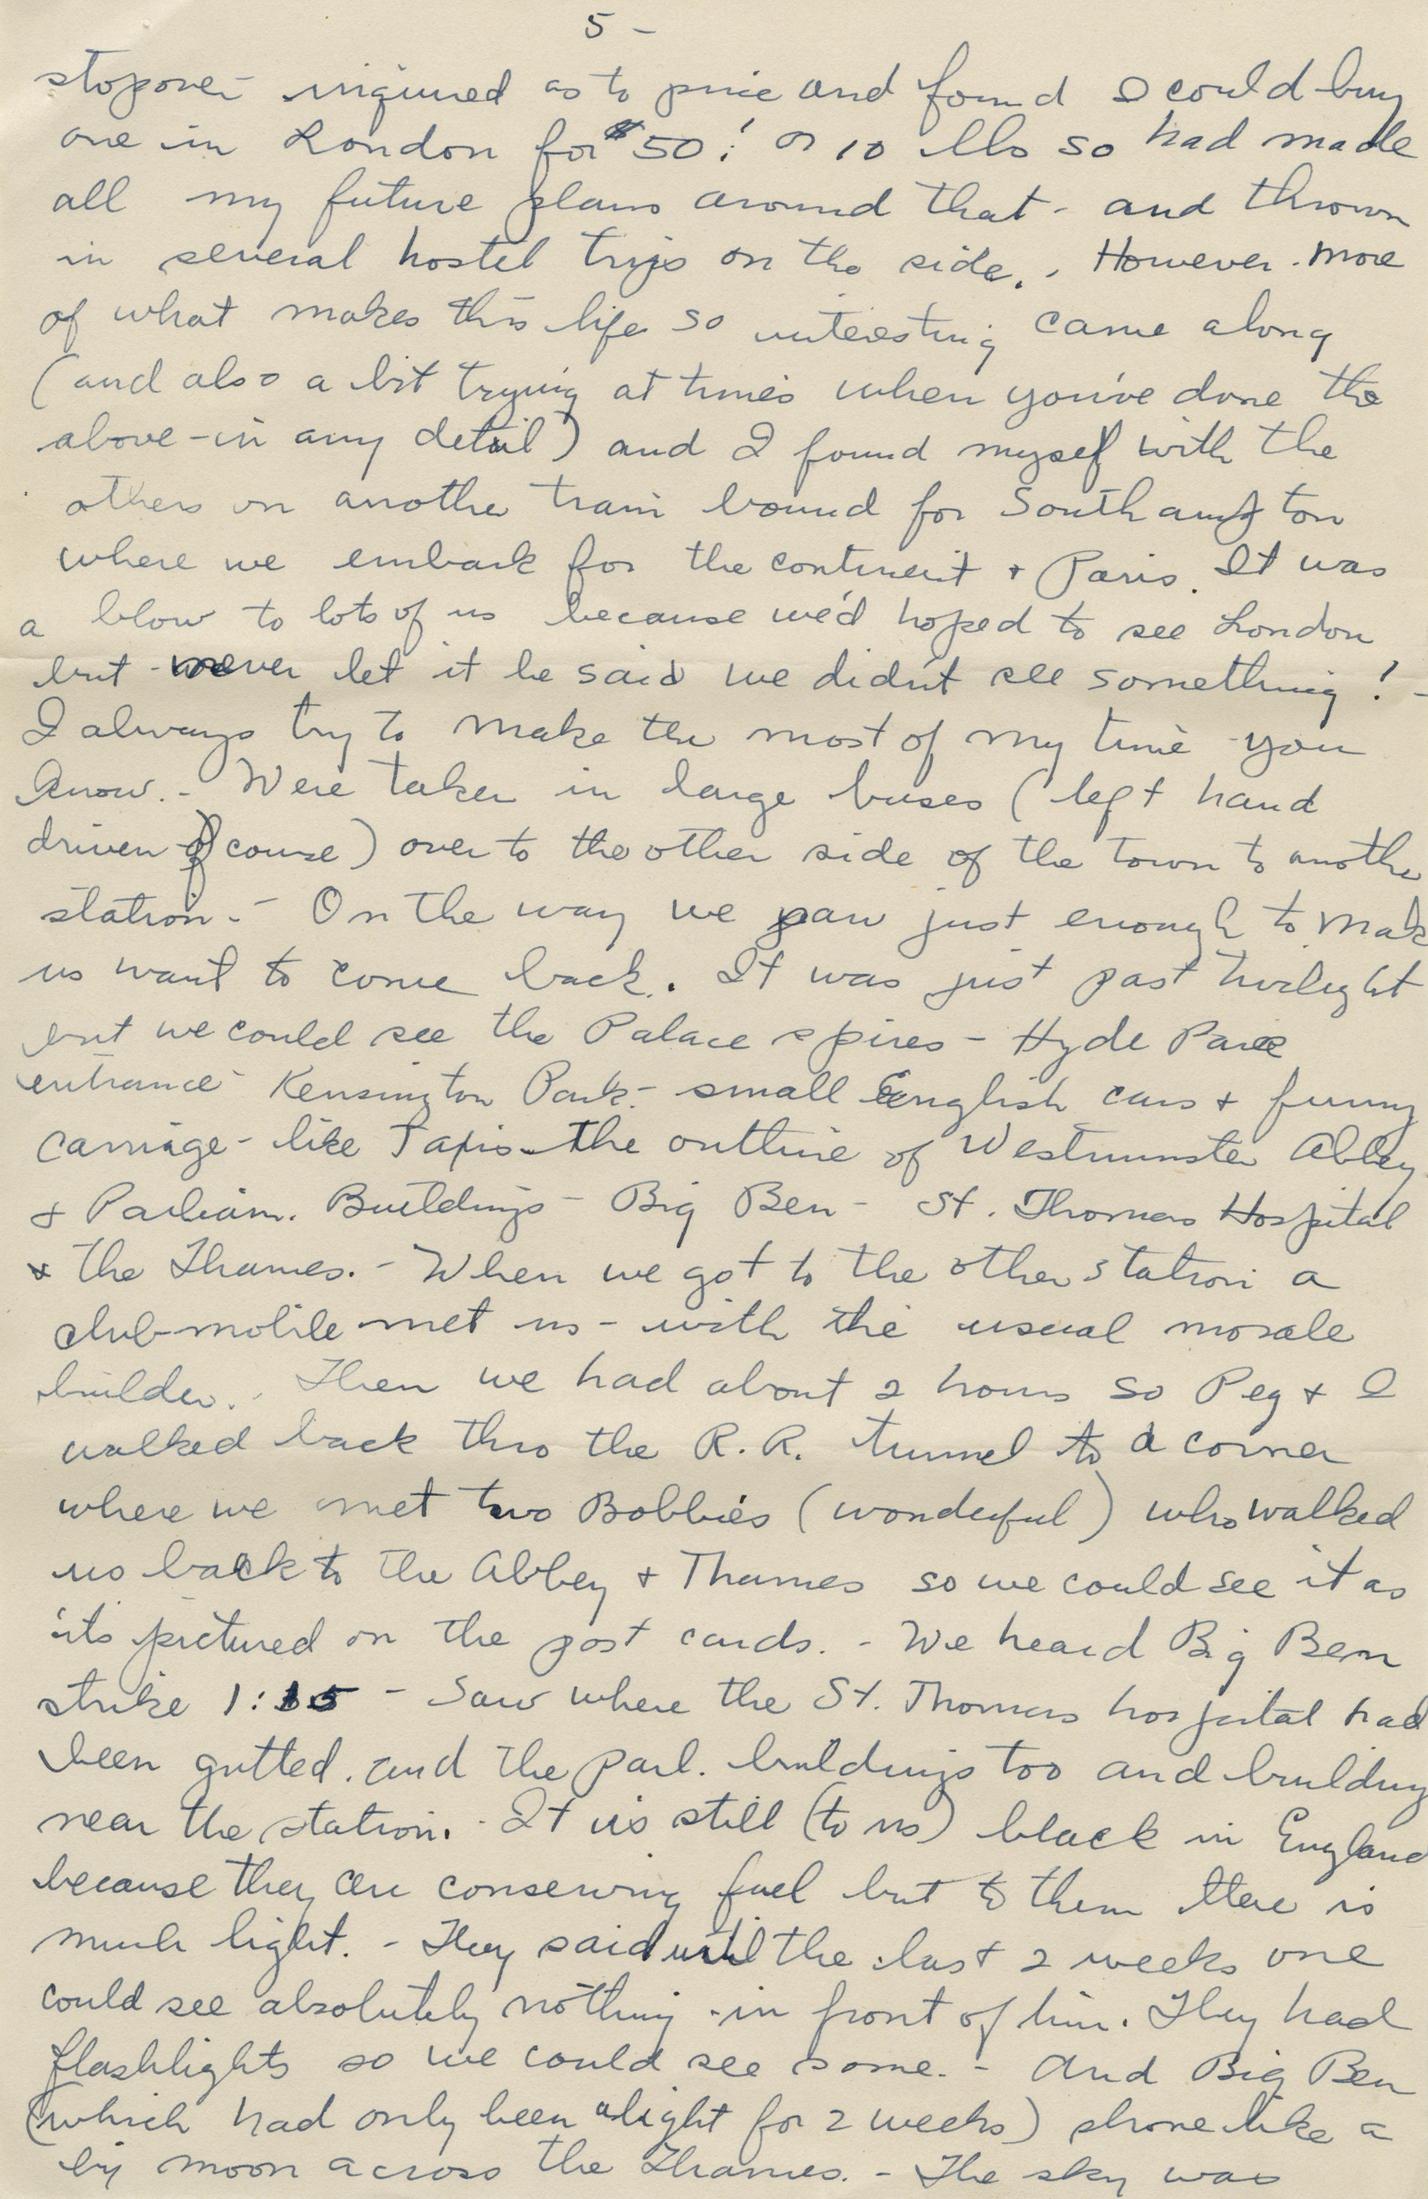 5 -
stopover inquired as to price and found I could buy
one in London for $50! or 10 lbs so had made
all my future plans around that - and thrown
in several hostel trips on the side. . However - more
of what makes this life so interesting came along
(and also a bit trying at times when you've done the
above - in any detail) and I found myself with the
others on another train bound for Southampton
where we embark for the continent + Paris. It was
a blow to lots of us because we'd hoped to see London
but never let it be said we didn't see something! -
I always try to make the most of my time you
know. - Were taken in large buses (left hand
driven of course) over to the other side of the town to another
station. - On the way we saw just enough to make
us want to come back. It was just past twilight
but we could see the Palace spires - Hyde Park
entrance - Kensington Park - small English cars + funny
carriage - like Taxis - the outline of Westminster Abbey
+ Parliam. Buildings - Big Ben - St. Thomas Hospital
+ the Thames. - When we got to the other station a
club-mobile met us - with the usual morale
builder. . Then we had about 2 hours so Peg + I
walked back thro the R.R. tunnel to a corner
where we met two Bobbies (wonderful) who walked
us back to the Abbey + Thames so we could see it as
its pictured on the post cards. - We heard Big Ben
strike 1:15 - Saw where the St. Thomas hospital had
been gutted. and the parl. buildings too and building
near the station. - It is still (to us) black in England
because they are conserving fuel but to them there is
much light. - They said until the last 2 weeks one
could see absolutely nothing - in front of him. They had
flashlights so we could see some. - And Big Ben
(which had only been alight for 2 weeks) shone like a
big moon across the Thames. - The sky was